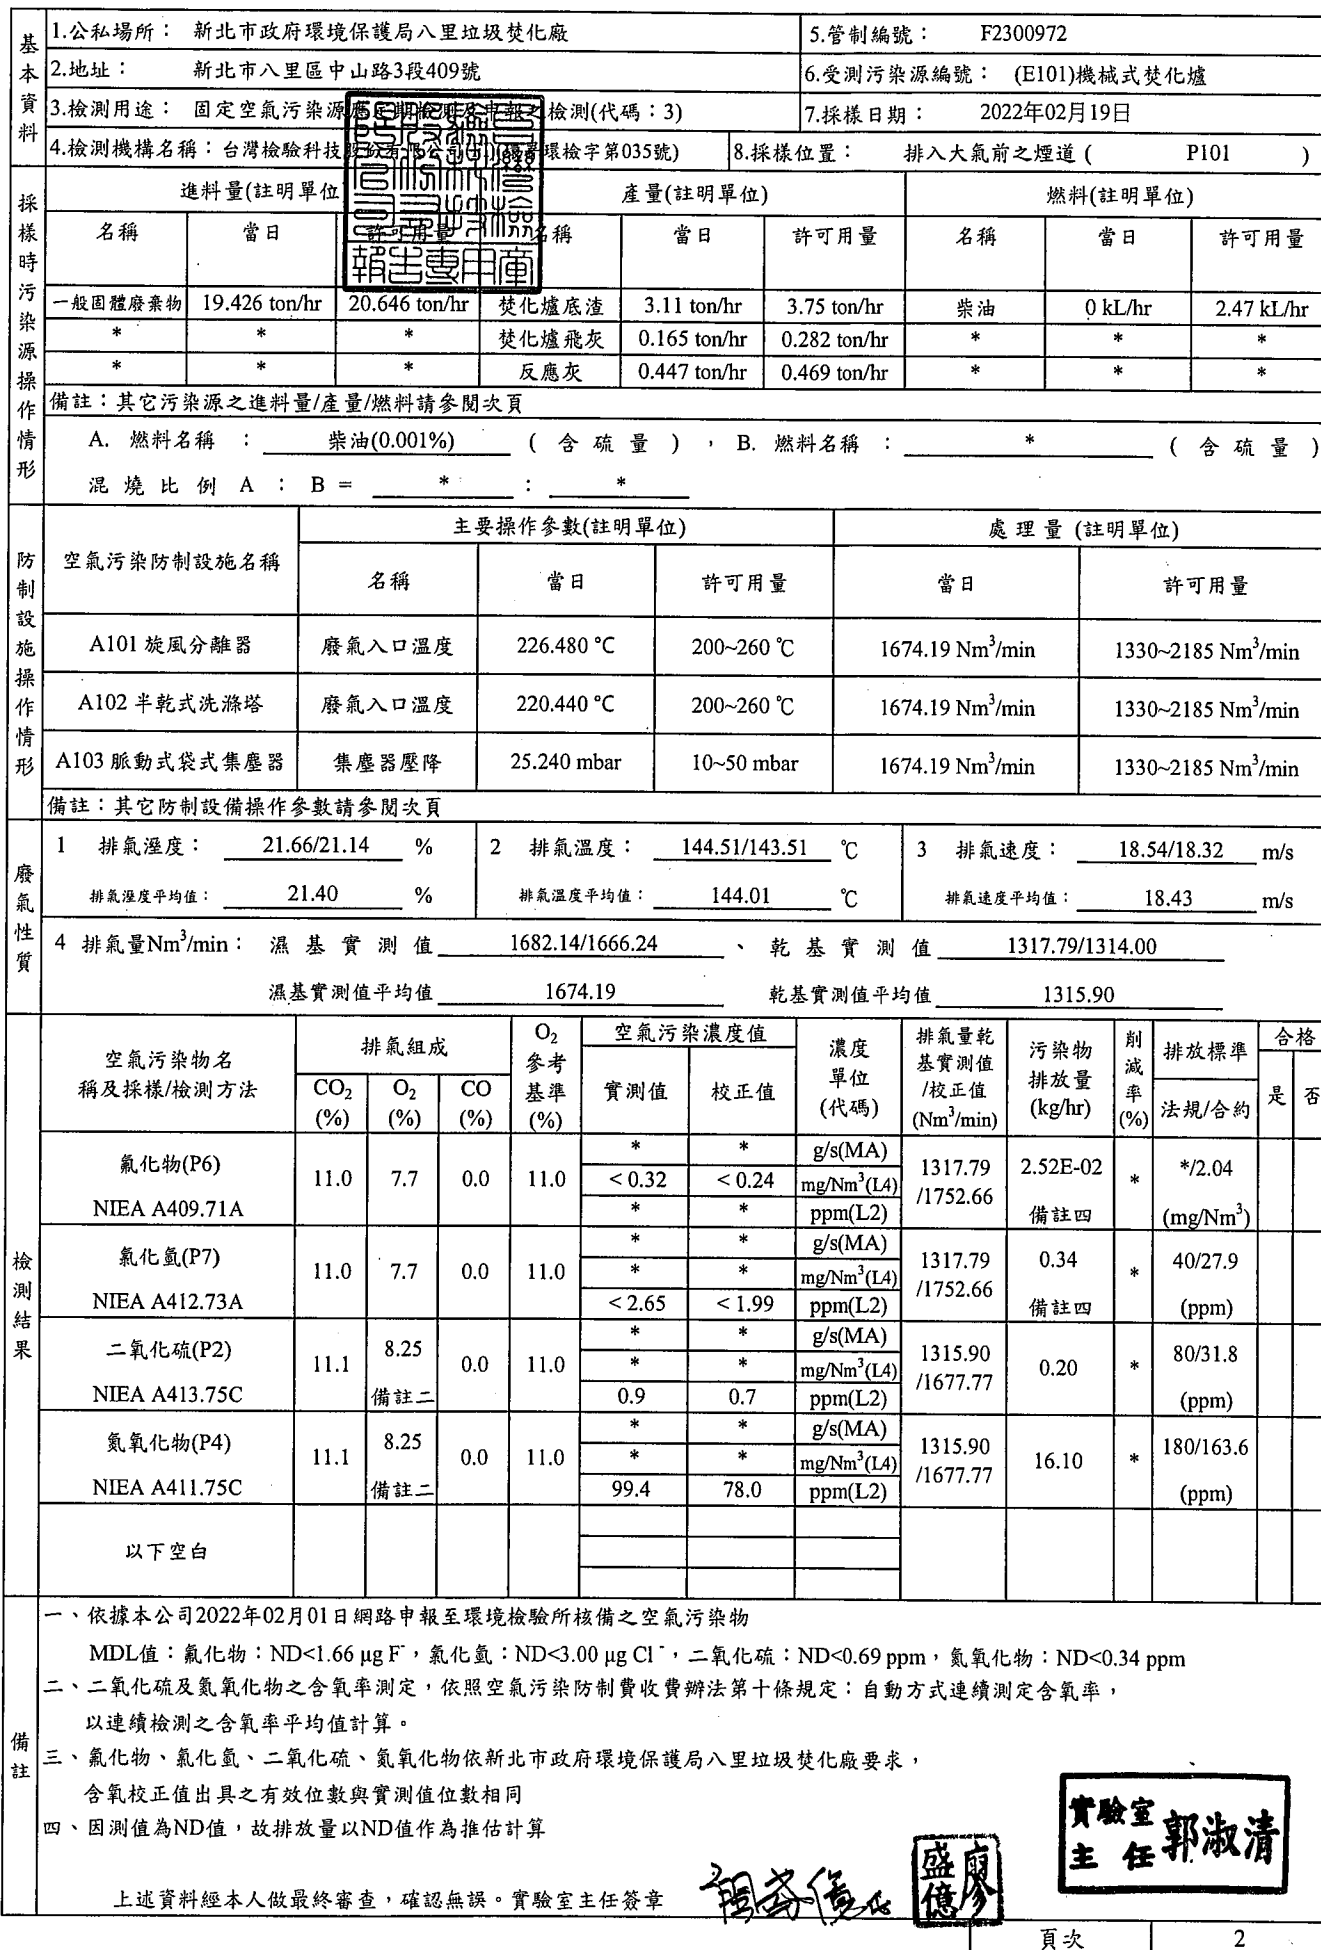 基本資料
1.公私場所： 新北市政府環境保護局八里垃圾焚化廠 5.管制編號： F2300972
2.地址： 新北市八里區中山路3段409號 6.受測污染源編號： (E101)機械式焚化爐
3.檢測用途： 固定空氣污染源應定期檢測及申報之檢測(代碼：3) 7.採樣日期： 2022年02月19日
4.檢測機構名稱：台灣檢驗科技股份有限公司 環檢字第035號) 8.採樣位置： 排入大氣前之煙道 ( P101 )
採樣時污染源操作情形
進料量(註明單位 產量(註明單位) 燃料(註明單位)
名稱 當日 許可用量 名稱 當日 許可用量 名稱 當日 許可用量
一般固體廢棄物 19.426 ton/hr 20.646 ton/hr 焚化爐底渣 3.11 ton/hr 3.75 ton/hr 柴油 0 kL/hr 2.47 kL/hr
* * * 焚化爐飛灰 0.165 ton/hr 0.282 ton/hr * * *
* * * 反應灰 0.447 ton/hr 0.469 ton/hr * * *
備註：其它污染源之進料量/產量/燃料請參閱次頁
A. 燃料名稱 ： 柴油(0.001%) ( 含硫量 ) ， B. 燃料名稱 ： * ( 含硫量 )
混燒比例 A ： B = * ： *
防制設施操作情形
空氣污染防制設施名稱 主要操作參數(註明單位) 處理量 (註明單位)
名稱 當日 許可用量 當日 許可用量
A101 旋風分離器 廢氣入口溫度 226.480 ℃ 200~260 ℃ 1674.19 Nm³/min 1330~2185 Nm³/min
A102 半乾式洗滌塔 廢氣入口溫度 220.440 ℃ 200~260 ℃ 1674.19 Nm³/min 1330~2185 Nm³/min
A103 脈動式袋式集塵器 集塵器壓降 25.240 mbar 10~50 mbar 1674.19 Nm³/min 1330~2185 Nm³/min
備註：其它防制設備操作參數請參閱次頁
廢氣性質
1 排氣溼度： 21.66/21.14 % 2 排氣溫度： 144.51/143.51 ℃ 3 排氣速度： 18.54/18.32 m/s
排氣溼度平均值： 21.40 % 排氣溫度平均值： 144.01 ℃ 排氣速度平均值： 18.43 m/s
4 排氣量Nm³/min： 濕基實測值 1682.14/1666.24 、 乾基實測值 1317.79/1314.00
濕基實測值平均值 1674.19 乾基實測值平均值 1315.90
檢測結果
空氣污染物名稱及採樣/檢測方法 排氣組成 O₂參考基準(%) 空氣污染濃度值 濃度單位(代碼) 排氣量乾基實測值/校正值(Nm³/min) 污染物排放量(kg/hr) 削減率(%) 排放標準 合格
CO₂(%) O₂(%) CO(%) 實測值 校正值 法規/合約 是 否
氟化物(P6) NIEA A409.71A 11.0 7.7 0.0 11.0 * * g/s(MA) 1317.79/1752.66 2.52E-02 備註四 * */2.04 (mg/Nm³)
< 0.32 < 0.24 mg/Nm³(L4)
* * ppm(L2)
氯化氫(P7) NIEA A412.73A 11.0 7.7 0.0 11.0 * * g/s(MA) 1317.79/1752.66 0.34 備註四 * 40/27.9 (ppm)
* * mg/Nm³(L4)
< 2.65 < 1.99 ppm(L2)
二氧化硫(P2) NIEA A413.75C 11.1 8.25 備註二 0.0 11.0 * * g/s(MA) 1315.90/1677.77 0.20 * 80/31.8 (ppm)
* * mg/Nm³(L4)
0.9 0.7 ppm(L2)
氮氧化物(P4) NIEA A411.75C 11.1 8.25 備註二 0.0 11.0 * * g/s(MA) 1315.90/1677.77 16.10 * 180/163.6 (ppm)
* * mg/Nm³(L4)
99.4 78.0 ppm(L2)
以下空白
備註
一、依據本公司2022年02月01日網路申報至環境檢驗所核備之空氣污染物
MDL值：氟化物：ND<1.66 μg F⁻，氯化氫：ND<3.00 μg Cl⁻，二氧化硫：ND<0.69 ppm，氮氧化物：ND<0.34 ppm
二、二氧化硫及氮氧化物之含氧率測定，依照空氣污染防制費收費辦法第十條規定：自動方式連續測定含氧率，
以連續檢測之含氧率平均值計算。
三、氟化物、氯化氫、二氧化硫、氮氧化物依新北市政府環境保護局八里垃圾焚化廠要求，
含氧校正值出具之有效位數與實測值位數相同
四、因測值為ND值，故排放量以ND值作為推估計算
實驗室主任 郭淑清
上述資料經本人做最終審查，確認無誤。實驗室主任簽章
廖盛億
頁次 2